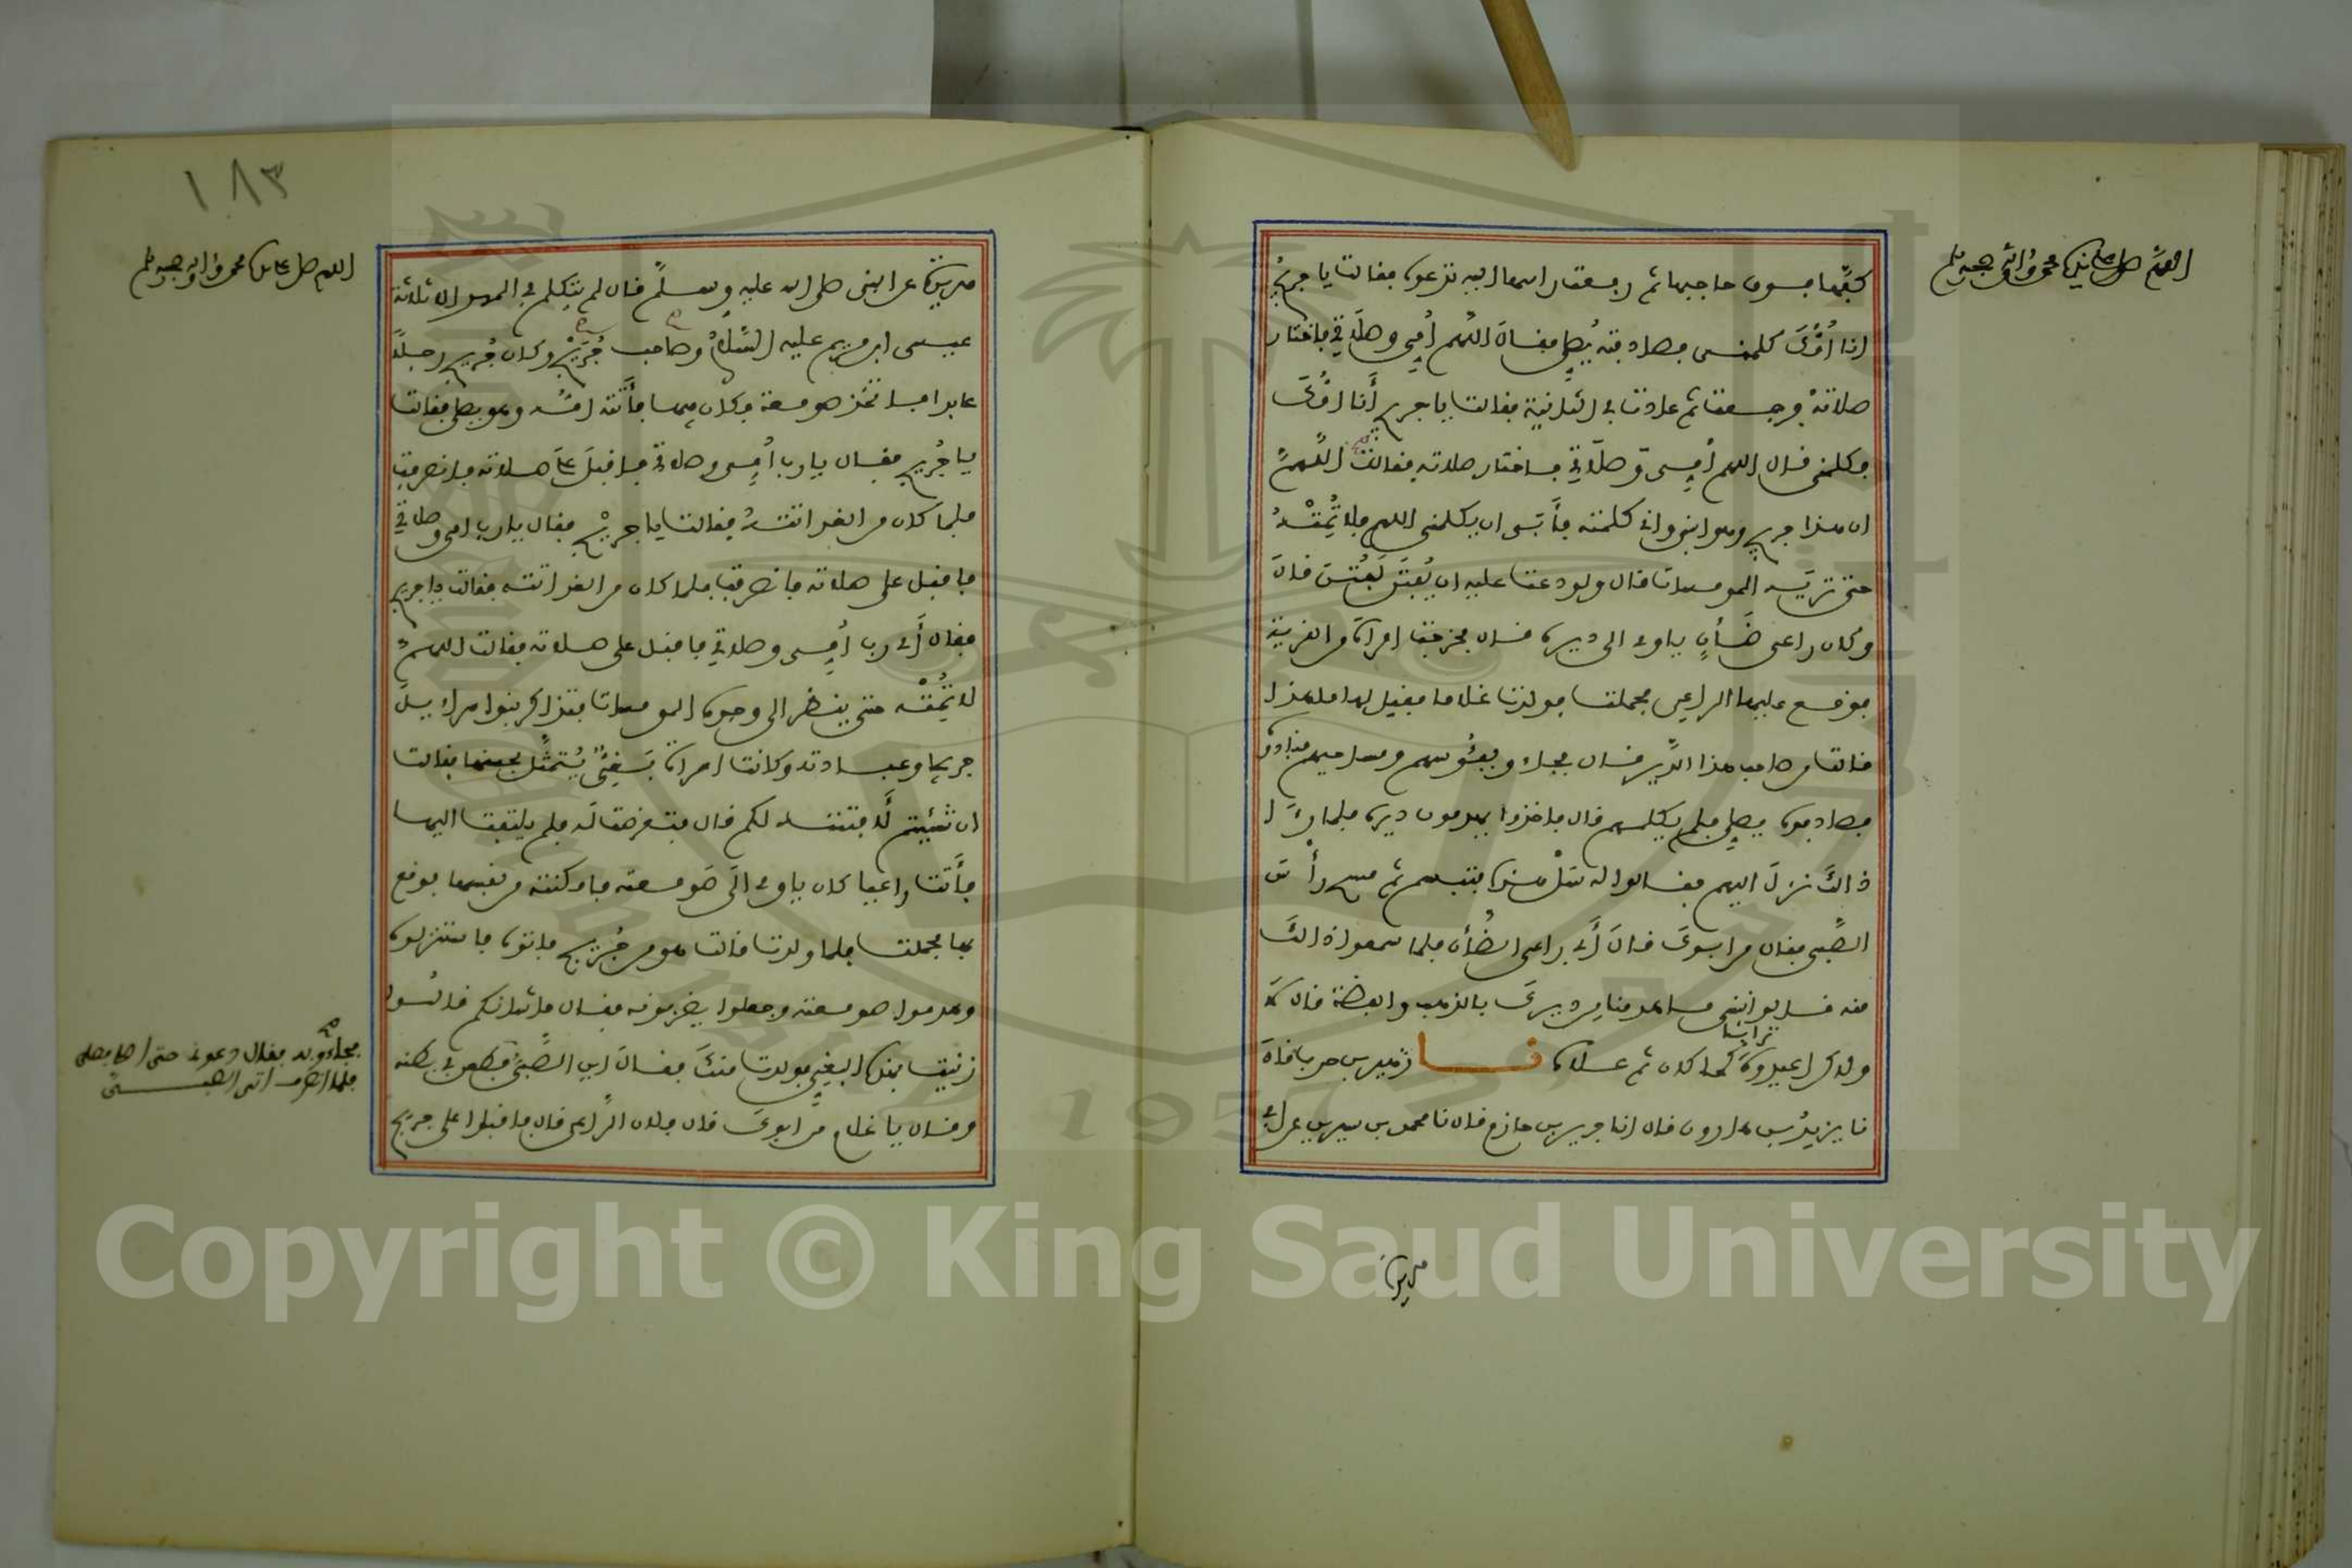 اللهم صل على سيدنا محمد واله وصحبه وسلم
كفها فوق حاجبها ثم رفعت راسها اليه تدعوه فقالت يا جريج
انا أمك كلمني فصادفته يصلي فقال اللهم أمي وصلاتي فاختار
صلاته فرجعت ثم عادت في الثانية فقالت يا جريج أنا امك
فكلمني قال اللهم أمي وصلاتي فاختار صلاته فقالت اللهم
ان هذا جريج وهو ابني واني كلمته فأبى ان يكلمني اللهم فلا تمته
حتى تريه المومسات قال ولو دعت عليه ان يفتن لفتن قال
وكان راعى ضأن ياوي الى ديره قال فخرجت امراة من القرية
فوقع عليها الراعي فحملت فولدت غلاما فقيل لها ما هذا
قالت من صاحب هذا الدير قال فجاءو بفئوسهم ومساحيهم فنادوه
فصادفوه يصلي فلم يكلمهم قال فاخذوا يهدمون ديره فلما رأى
ذالك نزل اليهم فقالوا له سل هذه فتبسم ثم مسح رأس
الصبي فقال من ابوك قال أبي راعي الضأن فلما سمعوا ذالك
منه قالوا نبني ما هدمنا من ديرك بالذهب والفضة قال لا
ولاكن اعيدوه ترابا كما كان ثم علاه نا زهير بن حرب قال
نا يزيد بن هارون قال انا جرير بن حازم قال نا محمد بن سيرين عن ابي
هريرة
١٨٣
اللهم صل على سيدنا محمد واله وصحبه وسلم
هريرة عن النبي صلى الله عليه وسلم قال لم يتكلم في المهد الا ثلاثة
عيسى ابن مريم عليه السلام وصاحب جريج وكان جريج رجلا
عابدا فاتخذ صومعة فكان فيها فأتته امه وهو يصلي فقالت
يا جريج فقال يا رب أمي وصلاتي فاقبل على صلاته فانصرفت
فلما كان من الغد اتته فقالت يا جريج فقال يا رب امي وصلاتي
فاقبل على صلاته فانصرفت فلما كان من الغد اتته فقالت يا جريج
فقال أي رب أمي وصلاتي فاقبل على صلاته فقالت اللهم
لا تمته حتى ينظر الى وجوه المومسات فتذاكر بنوا اسراءيل
جريجا وعبادته وكانت امراة بغي يتمثل بحسنها فقالت
ان شئيتم لأفتننه لكم قال فتعرضت له فلم يلتفت اليها
فأتت راعيا كان ياوي الى صومعته فامكنته من نفسها فوقع
بها فحملت فلما ولدت قالت هو من جريج فاتوه فاستنزلوه
وهدموا صومعته وجعلوا يضربونه فقال ما شانكم قالوا
زنيت بهذه البغي فولدت منك فقال اين الصبي فطعن في بطنه
فجاءو به فقال دعوني حتى اصلي فصلى
فلما انصرف اتى الصبي
وقال يا غلام من ابوك قال فلان الراعي قال فاقبلوا على جريج
Copyright © King Saud University